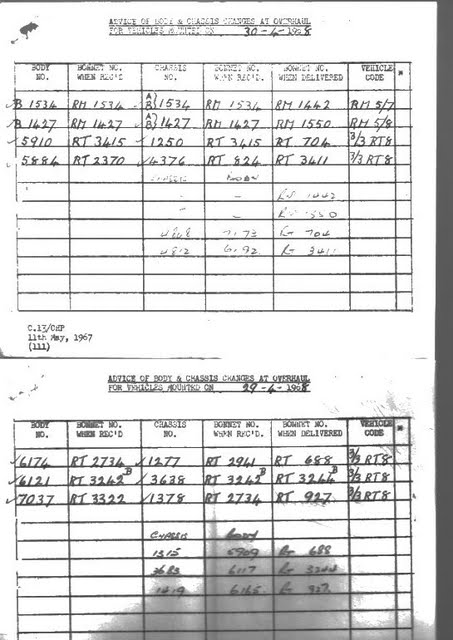 ADVICE OF BODY & CHASSIS CHANGES AT OVERHAUL
FOR VEHICLES MOUNTED ON 30-4-1968
BODY NO. BONNET NO. WHEN REC'D CHASSIS NO. BONNET NO. WHEN REC'D. BONNET NO. WHEN DELIVERED VEHICLE CODE *
B 1534 RM 1534 A/B} 1534 RM 1534 RM 1442 RM 5/7
B 1427 RM 1427 A/B} 1427 RM 1427 RM 1550 RM 5/8
✓5910 RT 3415 ✓1250 RT 3415 RT 704 3/3 RT8
✓5884 RT 2370 ✓4376 RT 824 RT 3411 3/3 RT8
CHASSIS BODY
- - RM 1442
- - RM 1550
4868 7173 Rt 704
4812 6192 Rt 3411
C.13/CHP
11th May, 1967
(111)
ADVICE OF BODY & CHASSIS CHANGES AT OVERHAUL
FOR VEHICLES MOUNTED ON 29-4-1968
BODY NO. BONNET NO. WHEN REC'D CHASSIS NO. BONNET NO. WHEN REC'D. BONNET NO. WHEN DELIVERED VEHICLE CODE *
✓6174 RT 2734 ✓1277 RT 2941 RT 688 3/3 RT8
✓6121 RT 3242B ✓3638 RT 3242B RT 3244B 3/3 RT8
✓7037 RT 3322 ✓1378 RT 2734 RT 927 3/3 RT8
CHASSIS BODY
1315 5909 Rt 688
3683 6117 Rt 3244
1419 6165 Rt 927